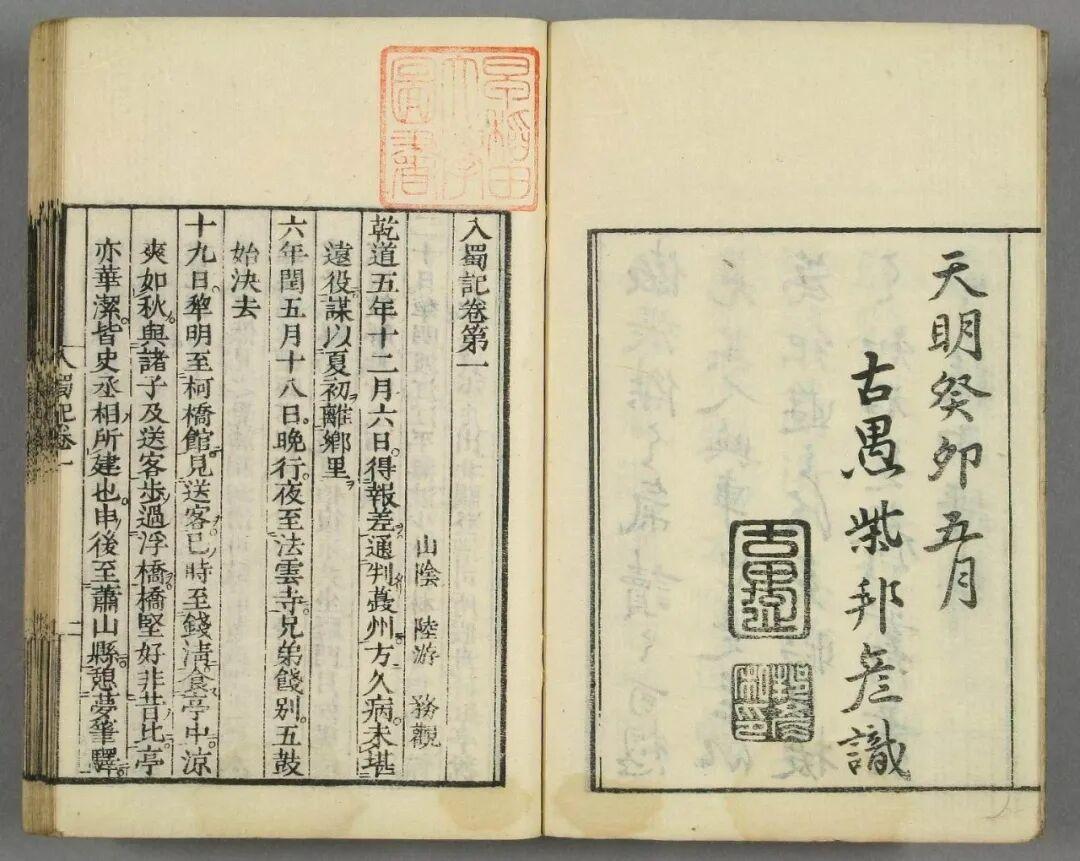 天明癸卯五月
古愚柴邦彦識
早稻田
大學
圖書
入蜀記卷第一
山陰 陸游 務觀
乾道五年十二月六日。得報差通判夔州。方久病。未堪
遠役。謀以夏初離鄉里
六年閏五月十八日。晚行。夜至法雲寺。兄弟餞別。五鼓
始決去
十九日。黎明至柯橋館。見送客。巳時至錢清。食亭中。涼
爽如秋。與諸子及送客步過浮橋。橋堅好非昔比。亭
亦華潔。皆史丞相所建也。申後至蕭山縣。憩夢筆驛。
入蜀記卷一